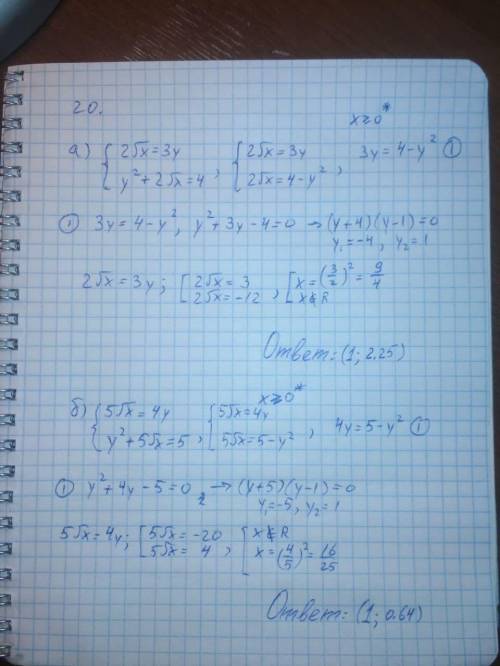 20.
x≥0*
а) { 2√x=3y ; y²+2√x=4 , { 2√x=3y ; 2√x=4-y² , 3y=4-y² ①
① 3y=4-y², y²+3y-4=0 → (y+4)(y-1)=0
y₁=-4, y₂=1
2√x=3y; [ 2√x=3 ; 2√x=-12 , [ x=(3/2)²=9/4 ; x∉R
Ответ: (1; 2.25)
x≥0*
б) { 5√x=4y ; y²+5√x=5 , { 5√x=4y ; 5√x=5-y² , 4y=5-y² ①
① y²+4y-5=0 → (y+5)(y-1)=0
y₁=-5, y₂=1
5√x=4y; [ 5√x=-20 ; 5√x=4 , [ x∉R ; x=(4/5)²=16/25
Ответ: (1; 0.64)